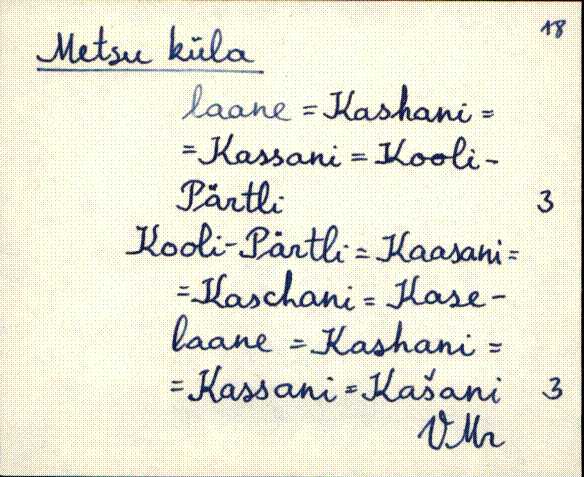 18
Metsu küla
laane = Kashani =
= Kassani = Kooli-
Pärtli 3
Kooli-Pärtli = Kaasani =
= Kaschani = Kase-
laane = Kashani =
= Kassani = Kašani 3
VMr